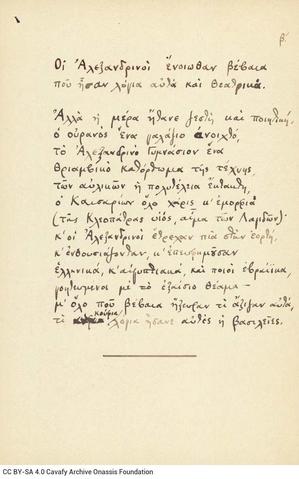 β.
Οἱ Ἀλεξανδρινοὶ ἔνοιωθαν βέβαια
ποῦ ἦσαν λόγια αὐτὰ καὶ θεατρικά.
Ἀλλὰ ἡ μέρα ἤτανε ζεστὴ καὶ ποιητική,
ὁ οὐρανὸς ἕνα γαλάζιο ἀνοιχτό,
τὸ Ἀλεξανδρινὸ Γυμνάσιον ἕνα
θριαμβικὸ κατόρθωμα τῆς τέχνης,
τῶν αὐλικῶν ἡ πολυτέλεια ἔκτακτη,
ὁ Καισαρίων ὅλο χάρις κ' ἐμορφιὰ
(τῆς Κλεοπάτρας υἱός, αἷμα τῶν Λαγιδῶν)·
κ' οἱ Ἀλεξανδρινοὶ ἔτρεχαν πιὰ στὴν ἑορτή,
κ' ἐνθουσιάζονταν, κ' ἐπευφημοῦσαν
ἑλληνικά, κ' αἰγυπτιακά, καὶ ποιοὶ ἑβραίικα,
γοητευμένοι μὲ τὸ ὡραῖο θέαμα —
μ' ὅλο ποῦ βέβαια ἤξευραν τί ἄξιζαν αὐτά,
τί κούφια λόγια ἤσανε αὐτὲς ἡ βασιλεῖες.
CC BY-SA 4.0 Cavafy Archive Onassis Foundation